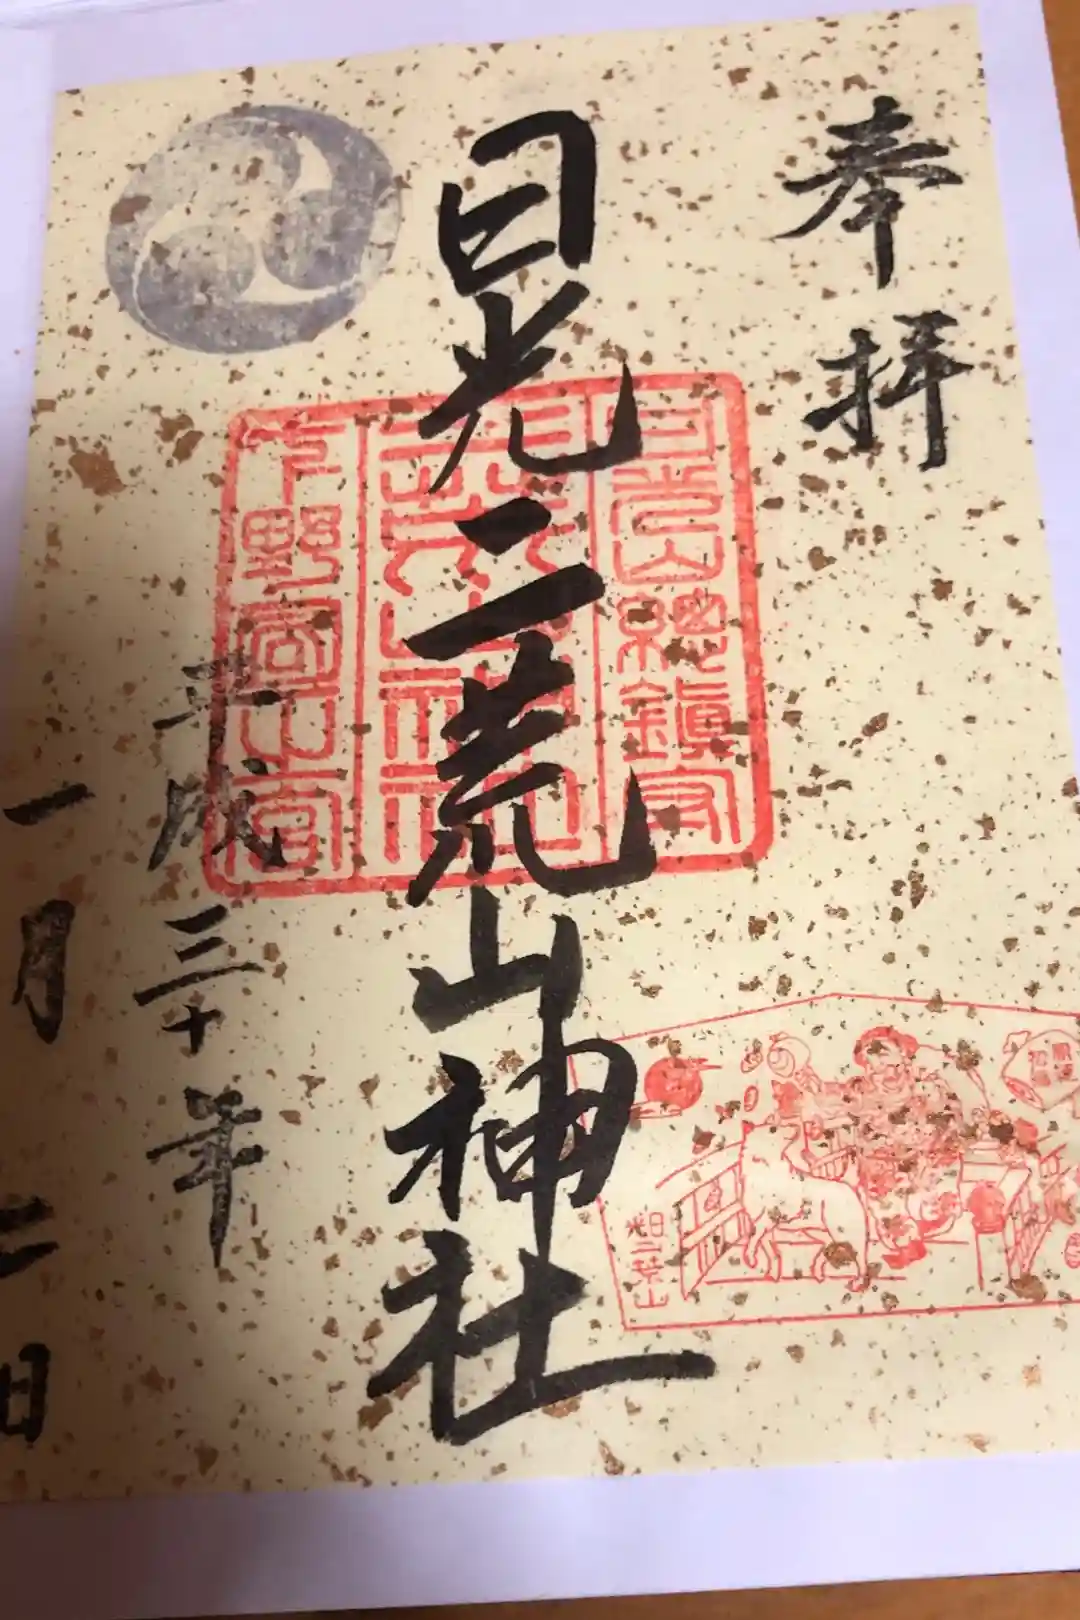 奉拝
日光二荒山神社
日光山總鎮守
二荒山神社
平成三十年
一月二日
日光二荒山